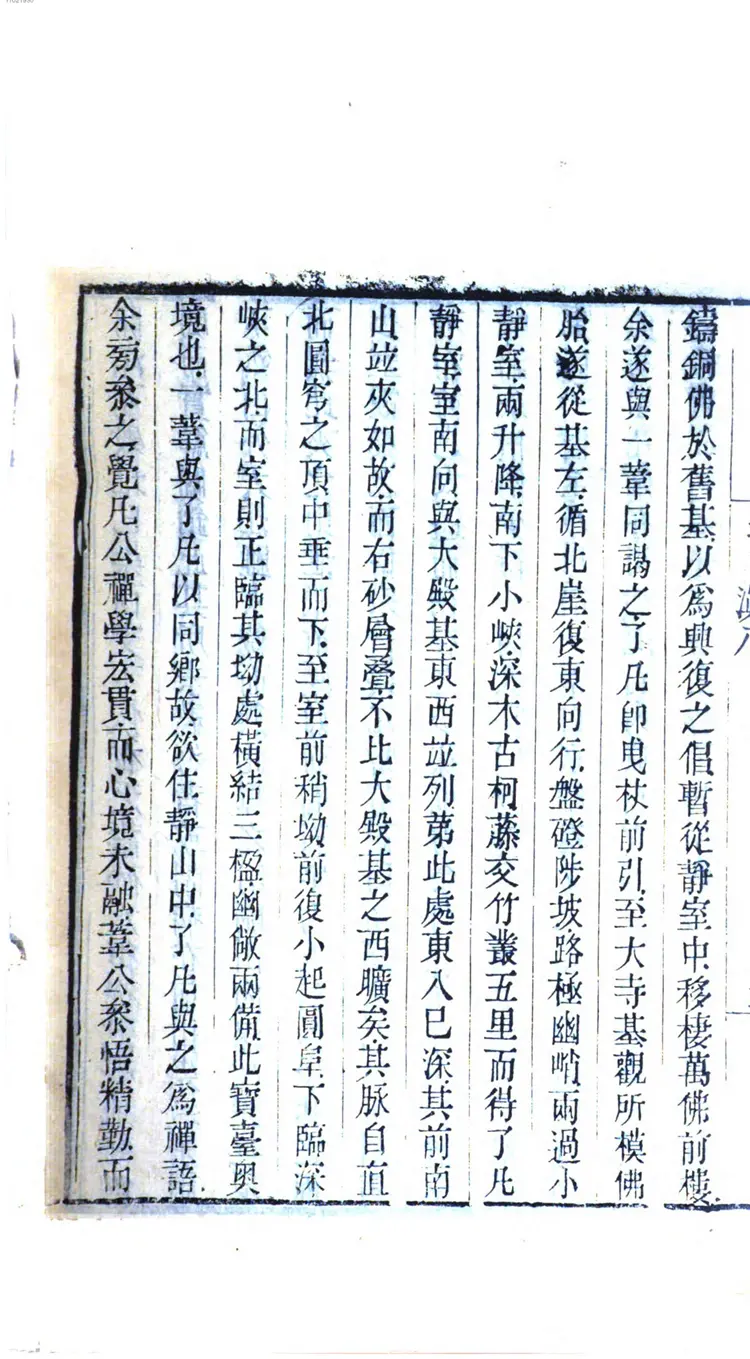 鑄銅佛於舊基以爲興復之倡暫從靜室中移棲萬佛前樓
余遂與一葦同謁之了凡卽曳杖前引至大寺基觀所模佛
胎遂從基左循北崖復東向行盤磴陟坡路極幽峭兩過小
靜室兩升降南下小峽深木古柯藤交竹叢五里而得了凡
靜室室南向與大殿基東西並列第此處東入已深其前南
山並夾如故而右砂層疊不比大殿基之西曠矣其脉自直
北圓穹之頂中垂而下至室前稍坳前復小起圓阜下臨深
峽之北而室則正臨其坳處橫結三楹幽敞兩備此寶臺奥
境也一葦與了凡以同鄉故欲住靜山中了凡與之爲禪語
余旁叅之覺凡公禪學宏貫而心境未融葦公叅悟精勤而